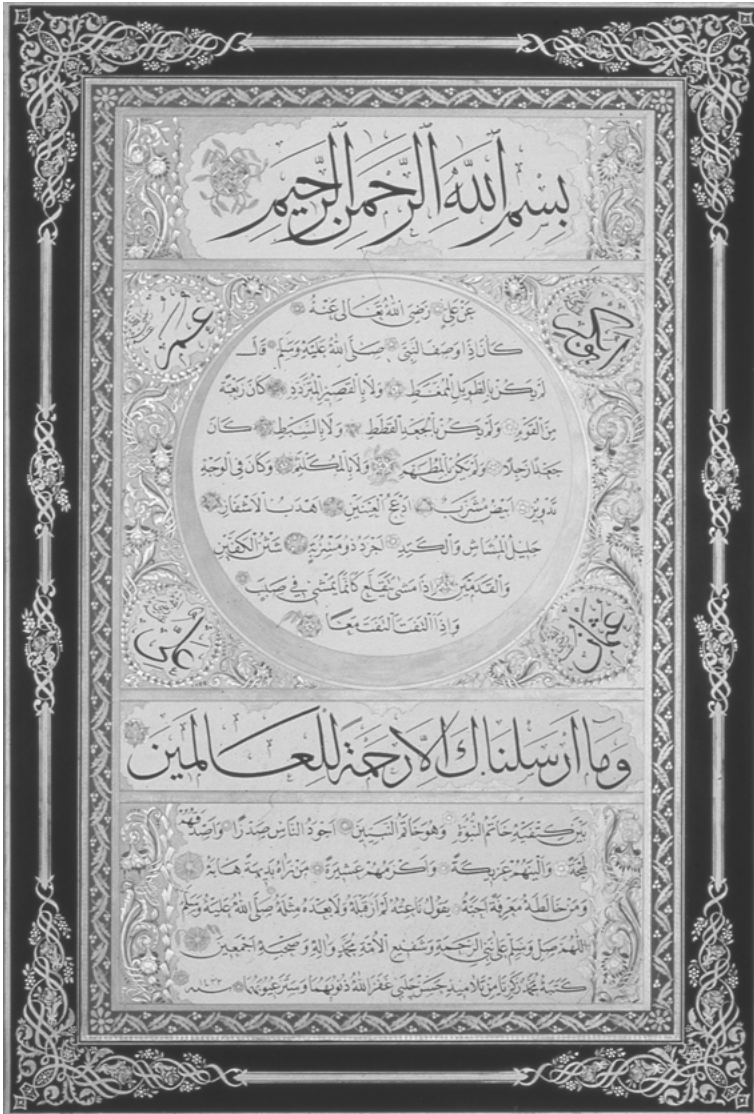 بِسْمِ اللّٰهِ الرَّحْمٰنِ الرَّحِيْمِ
ابوبكر
عمر
عَنْ عَلِيٍّ رَضِيَ اللّٰهُ تَعَالٰى عَنْهُ
كَانَ اِذَا وَصَفَ النَّبِيَّ صَلَّى اللّٰهُ عَلَيْهِ وَسَلَّمَ قَالَ
لَمْ يَكُنْ بِالطَّوِيلِ الْمُمَغَّطِ وَلَا بِالْقَصِيرِ الْمُتَرَدِّدِ كَانَ رَبْعَةً
مِنَ الْقَوْمِ وَلَمْ يَكُنْ بِالْجَعْدِ الْقَطَطِ وَلَا بِالسَّبِطِ كَانَ
جَعْدًا رَجِلًا وَلَمْ يَكُنْ بِالْمُطَهَّمِ وَلَا بِالْمُكَلْثَمِ وَكَانَ فِي الْوَجْهِ
تَدْوِيرٌ اَبْيَضُ مُشْرَبٌ اَدْعَجُ الْعَيْنَيْنِ اَهْدَبُ الْاَشْفَارِ
جَلِيلُ الْمُشَاشِ وَالْكَتَدِ اَجْرَدُ ذُو مَسْرُبَةٍ شَثْنُ الْكَفَّيْنِ
وَالْقَدَمَيْنِ اِذَا مَشٰى تَقَلَّعَ كَاَنَّمَا يَمْشِي فِي صَبَبٍ
وَاِذَا الْتَفَتَ الْتَفَتَ مَعًا
عثمان
على
وَمَا اَرْسَلْنَاكَ اِلَّا رَحْمَةً لِلْعَالَمِينَ
بَيْنَ كَتِفَيْهِ خَاتَمُ النُّبُوَّةِ وَهُوَ خَاتَمُ النَّبِيِّينَ اَجْوَدُ النَّاسِ صَدْرًا وَاَصْدَقُهُمْ
لَهْجَةً وَاَلْيَنُهُمْ عَرِيكَةً وَاَكْرَمُهُمْ عَشِيرَةً مَنْ رَاٰهُ بَدِيهَةً هَابَهُ
وَمَنْ خَالَطَهُ مَعْرِفَةً اَحَبَّهُ يَقُولُ نَاعِتُهُ لَمْ اَرَ قَبْلَهُ وَلَا بَعْدَهُ مِثْلَهُ صَلَّى اللّٰهُ عَلَيْهِ وَسَلَّمَ
اللّٰهُمَّ صَلِّ وَسَلِّمْ عَلٰى نَبِيِّ الرَّحْمَةِ وَشَفِيعِ الْاُمَّةِ مُحَمَّدٍ وَاٰلِهِ وَصَحْبِهِ اَجْمَعِينَ
كَتَبَهُ مُحَمَّد زَكَرِيَّا مِنْ تَلَامِيذِ حَسَن چلبى غَفَرَ اللّٰهُ ذُنُوبَهُمَا وَسَتَرَ عُيُوبَهُمَا سنه